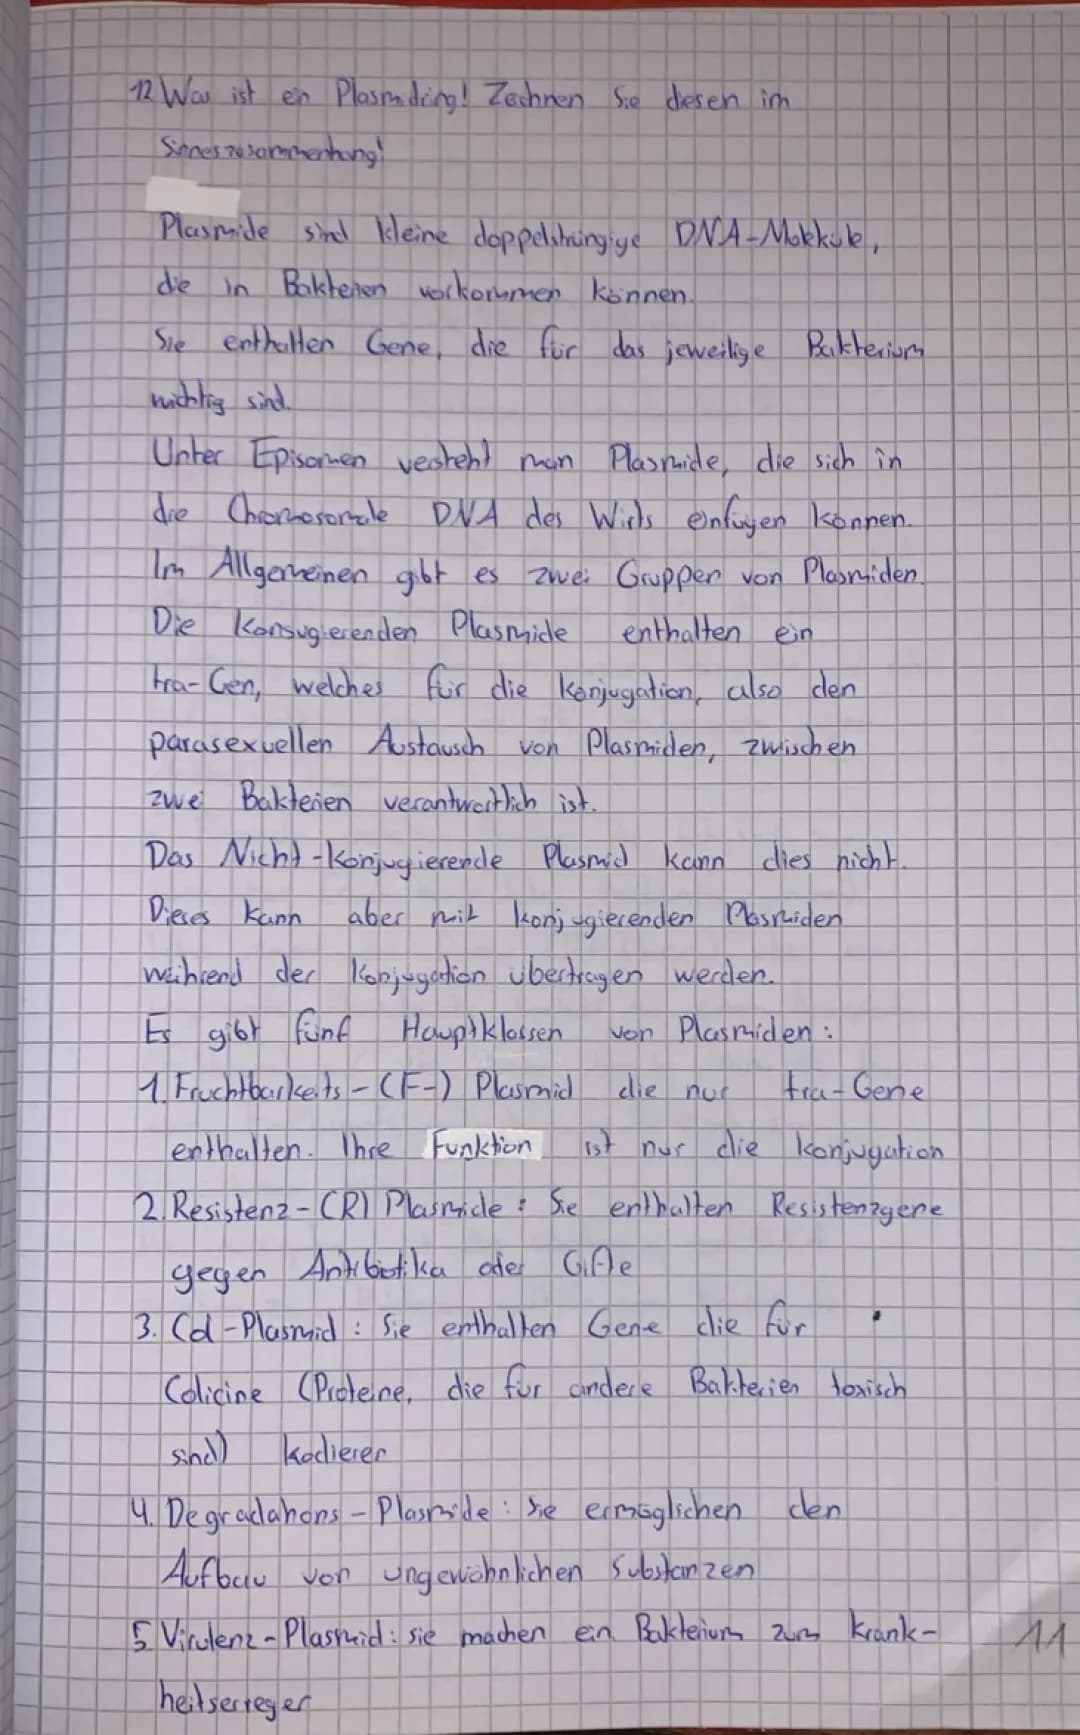 12 Was ist ein Plasmidring! Zeichnen Sie diesen im
Sinneszusammenhang!
Plasmide sind kleine doppelsträngige DNA-Moleküle,
die in Bakterien vorkommen können.
Sie enthalten Gene, die für das jeweilige Bakterium
wichtig sind.
Unter Episomen versteht man Plasmide, die sich in
die Chromosomale DNA des Wirts einfügen können.
Im Allgemeinen gibt es zwei Gruppen von Plasmiden.
Die Konsugierenden Plasmide enthalten ein
tra-Gen, welches für die Konjugation, also den
parasexuellen Austausch von Plasmiden, zwischen
zwei Bakterien verantwortlich ist.
Das Nicht-Konjugierende Plasmid kann dies nicht.
Dieses kann aber mit konjugierenden Plasmiden
während der Konjugation übertragen werden.
Es gibt fünf Hauptklassen von Plasmiden:
1. Fruchtbarkeits-(F-) Plasmid die nur tra-Gene
enthalten. Ihre Funktion ist nur die Konjugation
2. Resistenz-(R) Plasmide: Sie enthalten Resistenzgene
gegen Antibiotika oder Gifte
3. Col-Plasmid: Sie enthalten Gene die für
Colicine (Proteine, die für andere Bakterien toxisch
sind) kodieren
4. Degradations-Plasmide: Sie ermöglichen den
Aufbau von ungewöhnlichen Substanzen
5. Virulenz-Plasmid: sie machen ein Bakterium zum Krank-
heitserreger
11